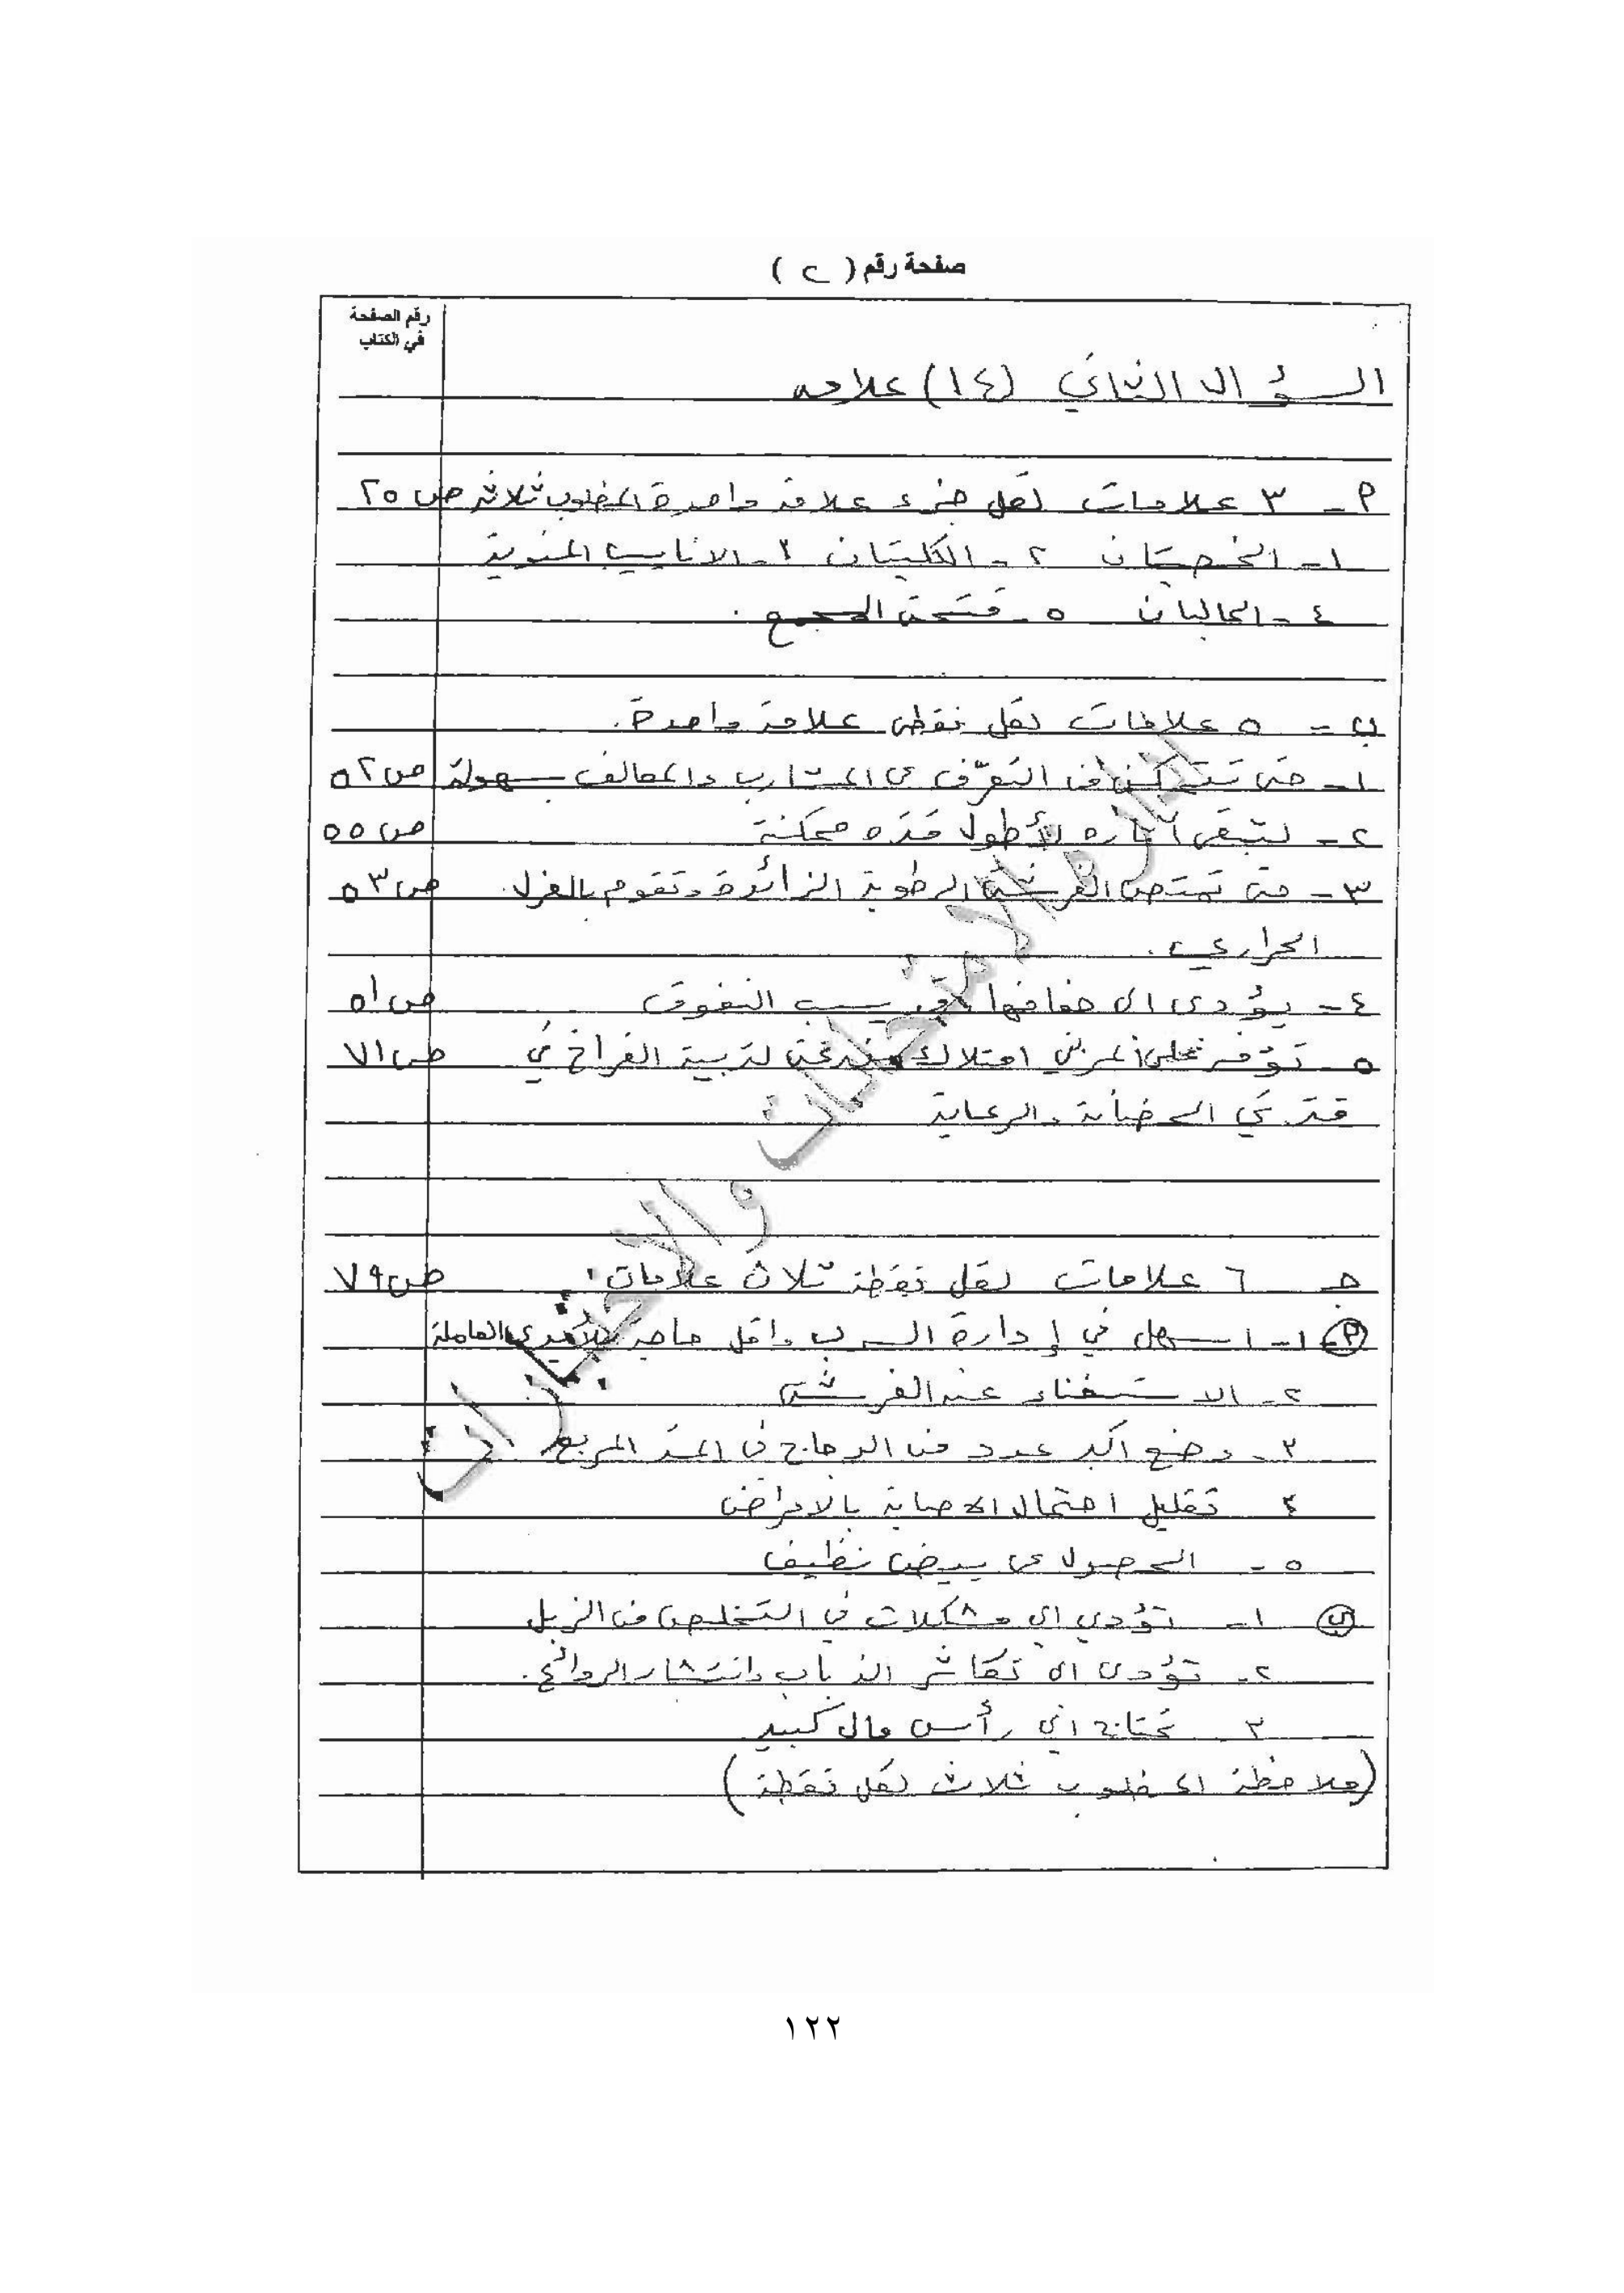 صفحة رقم ( ٢ )
رقم الصفحة
في الكتاب
السؤال الثاني (١٤) علامه
٣ - أ علامات لكل جزء علامة واحدة المطلوب ثلاثة ص ٢٥
١- الخصيتان ٢- الكليتان ٣- الانابيب المنوية
٤- الحالبان ٥- فتحة المجمع .
ب - ٥ علامات لكل نقطة علامة واحدة.
١- حتى تتمكن من التعرّف على المشارب والمعالف بسهولة ص ٥٢
٢- لتبقى آثاره لأطول مده ممكنة ص ٥٥
٣- حتى تمتص الفرشة الرطوبة الزائدة وتقوم بالعزل ص ٥٣
الحراري .
٤- يؤدى الى جفافها يسبب النفوق ص ٥١
٥- توفر على المربي امتلاك لتربية الفراخ في ص ٧١
فترتي الحضانة والرعاية
ج ٦ علامات لكل نقطة ثلاث علامات . ص ٧٩
أ ١- اسهل في إدارة السرب واقل حاجة للأيدي العاملة
٢- الاستغناء عن الفرشة
٣- وضع اكبر عدد من الدجاج في المتر المربع
٤ تقليل احتمال الاصابة بالامراض
٥- الحصول على بيض نظيف
ب ١- تؤدي الى مشكلات في التخلص من الزبل
٢- تؤدى الى تكاثر الذباب وانتشار الروائح.
٣- تحتاج الى رأس مال كبير
(ملاحظة المطلوب ثلاث لكل نقطة)
ادارة الامتحانات والاختبارات
١٢٢